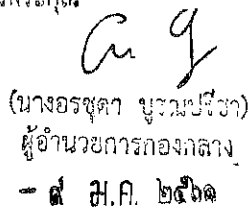 (นางอรชุดา บูรณปรีชา)
ผู้อำนวยการกองกลาง
- ๙ ม.ค. ๒๕๖๑